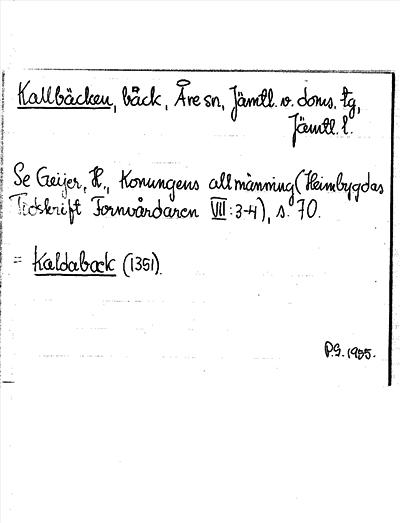 Kallbäcken, bäck, Åre sn, Jämtl. v. doms. tg,
Jämtl. l.
Se Geijer, H., Konungens allmänning (Heimbygdas
Tidskrift Fornvårdaren VII:3-4), s. 70.
= Kaldabæk (1351).
P.G. 1955.